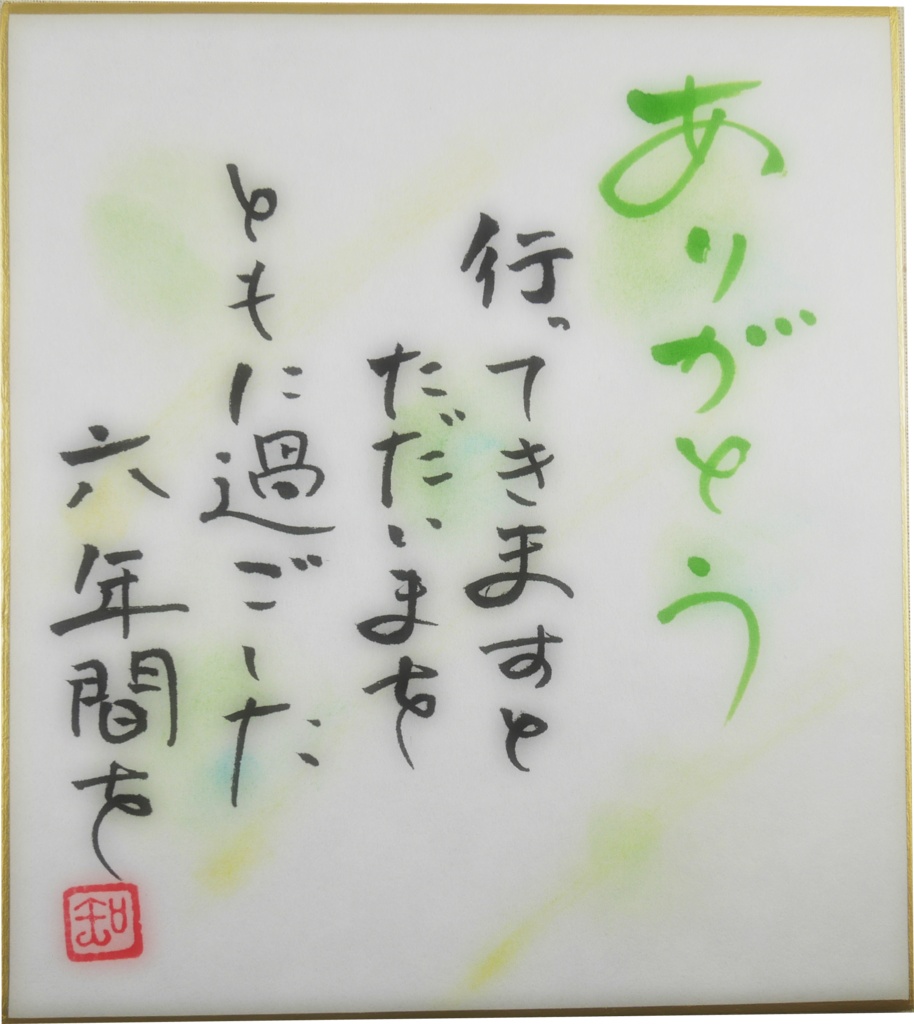 ありがとう
行ってきますと
ただいまを
ともに過ごした
六年間を